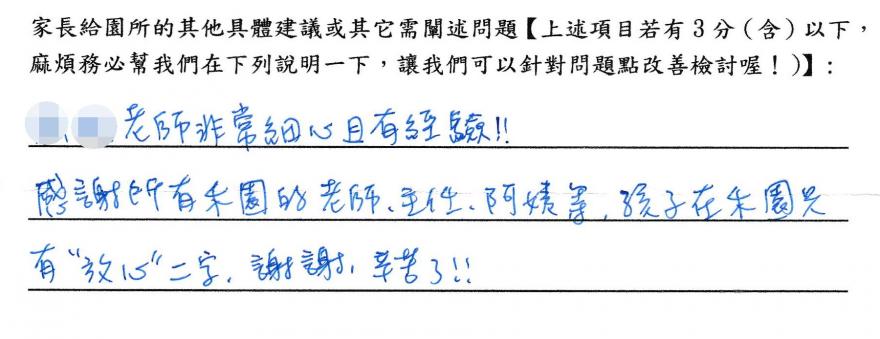 家長給園所的其他具體建議或其它需闡述問題【上述項目若有3分(含)以下，
麻煩務必幫我們在下列說明一下，讓我們可以針對問題點改善檢討喔！)】：
、老師非常細心且有經驗!!
感謝所有禾園的老師、主任、阿姨等，孩子在禾園只
有"放心"二字，謝謝，辛苦了!!